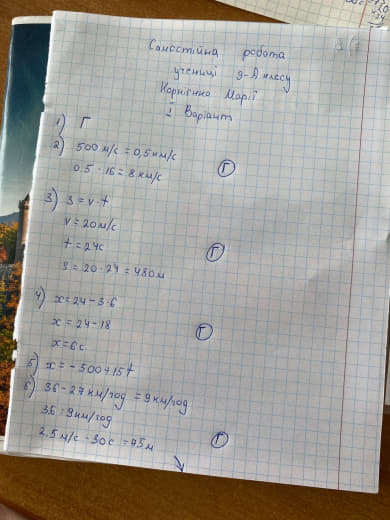 Самостійна робота
учениці 9-А класу
Корнієнко Марії
I Варіант
1) Г
2) 500 м/с = 0,5 км/с
0.5 · 16 = 8 км/с Г
3) S = v · t
v = 20 м/с
t = 24с
S = 20 · 24 = 480 м Г
4) x = 24 - 3 · 6
x = 24 - 18
x = 6с Г
5) x = - 500 + 15t
6) 36 - 27 км/год = 9 км/год
36 = 9 км/год
2.5 м/с · 30с = 75м Г